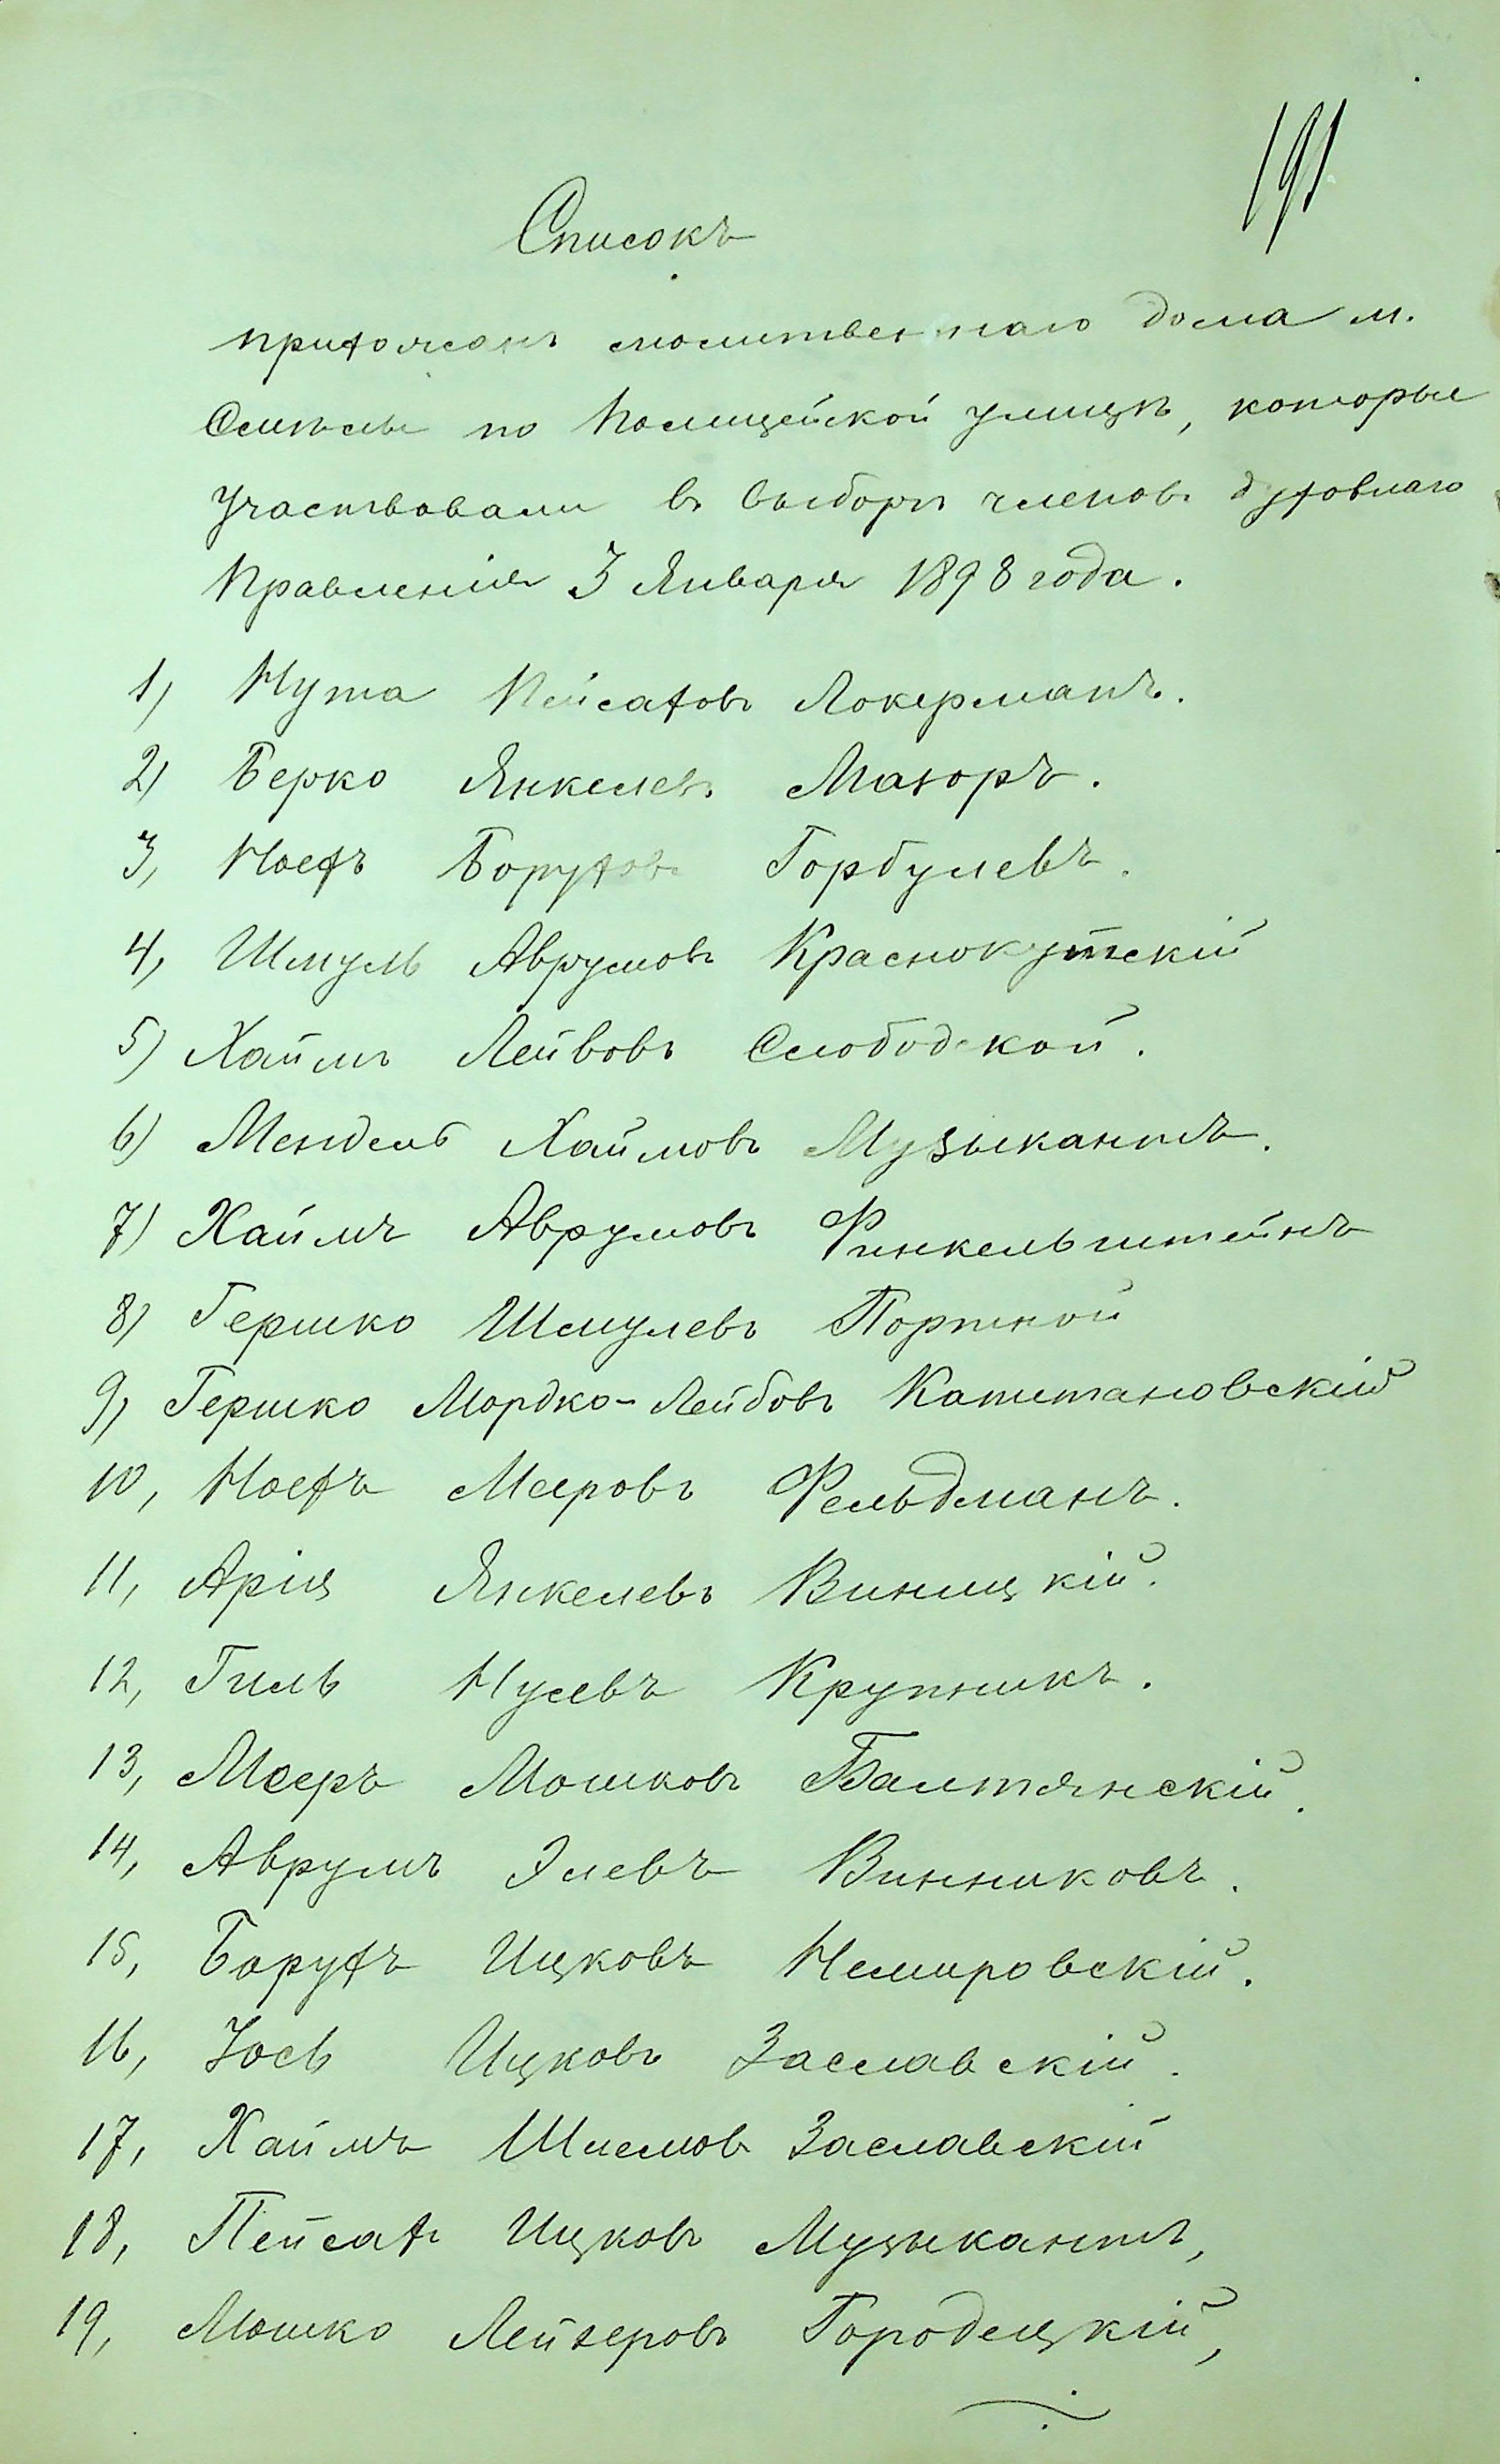 191
Списокъ
прихожанъ молитвеннаго дома м.
Смѣлы по Полицейской улицѣ, которые
участвовали въ выборѣ членовъ духовнаго
Правленія 3 Января 1898 года.
1) Нута Пейсаховъ Локерманъ.
2) Берко Янкелевъ Маюръ.
3, Ноехъ Боруховъ Горбулевъ.
4, Шмуль Аврумовъ Краснокутскій
5) Хаймъ Лейвовъ Слободской.
6) Мендель Хаймовъ Музыкантъ.
7) Хаимъ Аврумовъ Финкельштейнъ
8) Гершко Шмулевъ Портной
9) Гершко Мордко-Лейбовъ Капитановскій
10, Ноехъ Мееровъ Фельдманъ.
11, Арія Янкелевъ Виницкій.
12, Гиль Нусевъ Крупникъ.
13, Мееръ Мошковъ Балтянскій.
14, Аврумъ Элевъ Винниковъ.
15, Борухъ Ицковъ Немировскій.
16, Іось Ицковъ Заславскій.
17, Хаимъ Шлемовъ Заславскій
18, Пейсахъ Ицковъ Музыкантъ,
19, Мошко Лейзеровъ Городецкій,